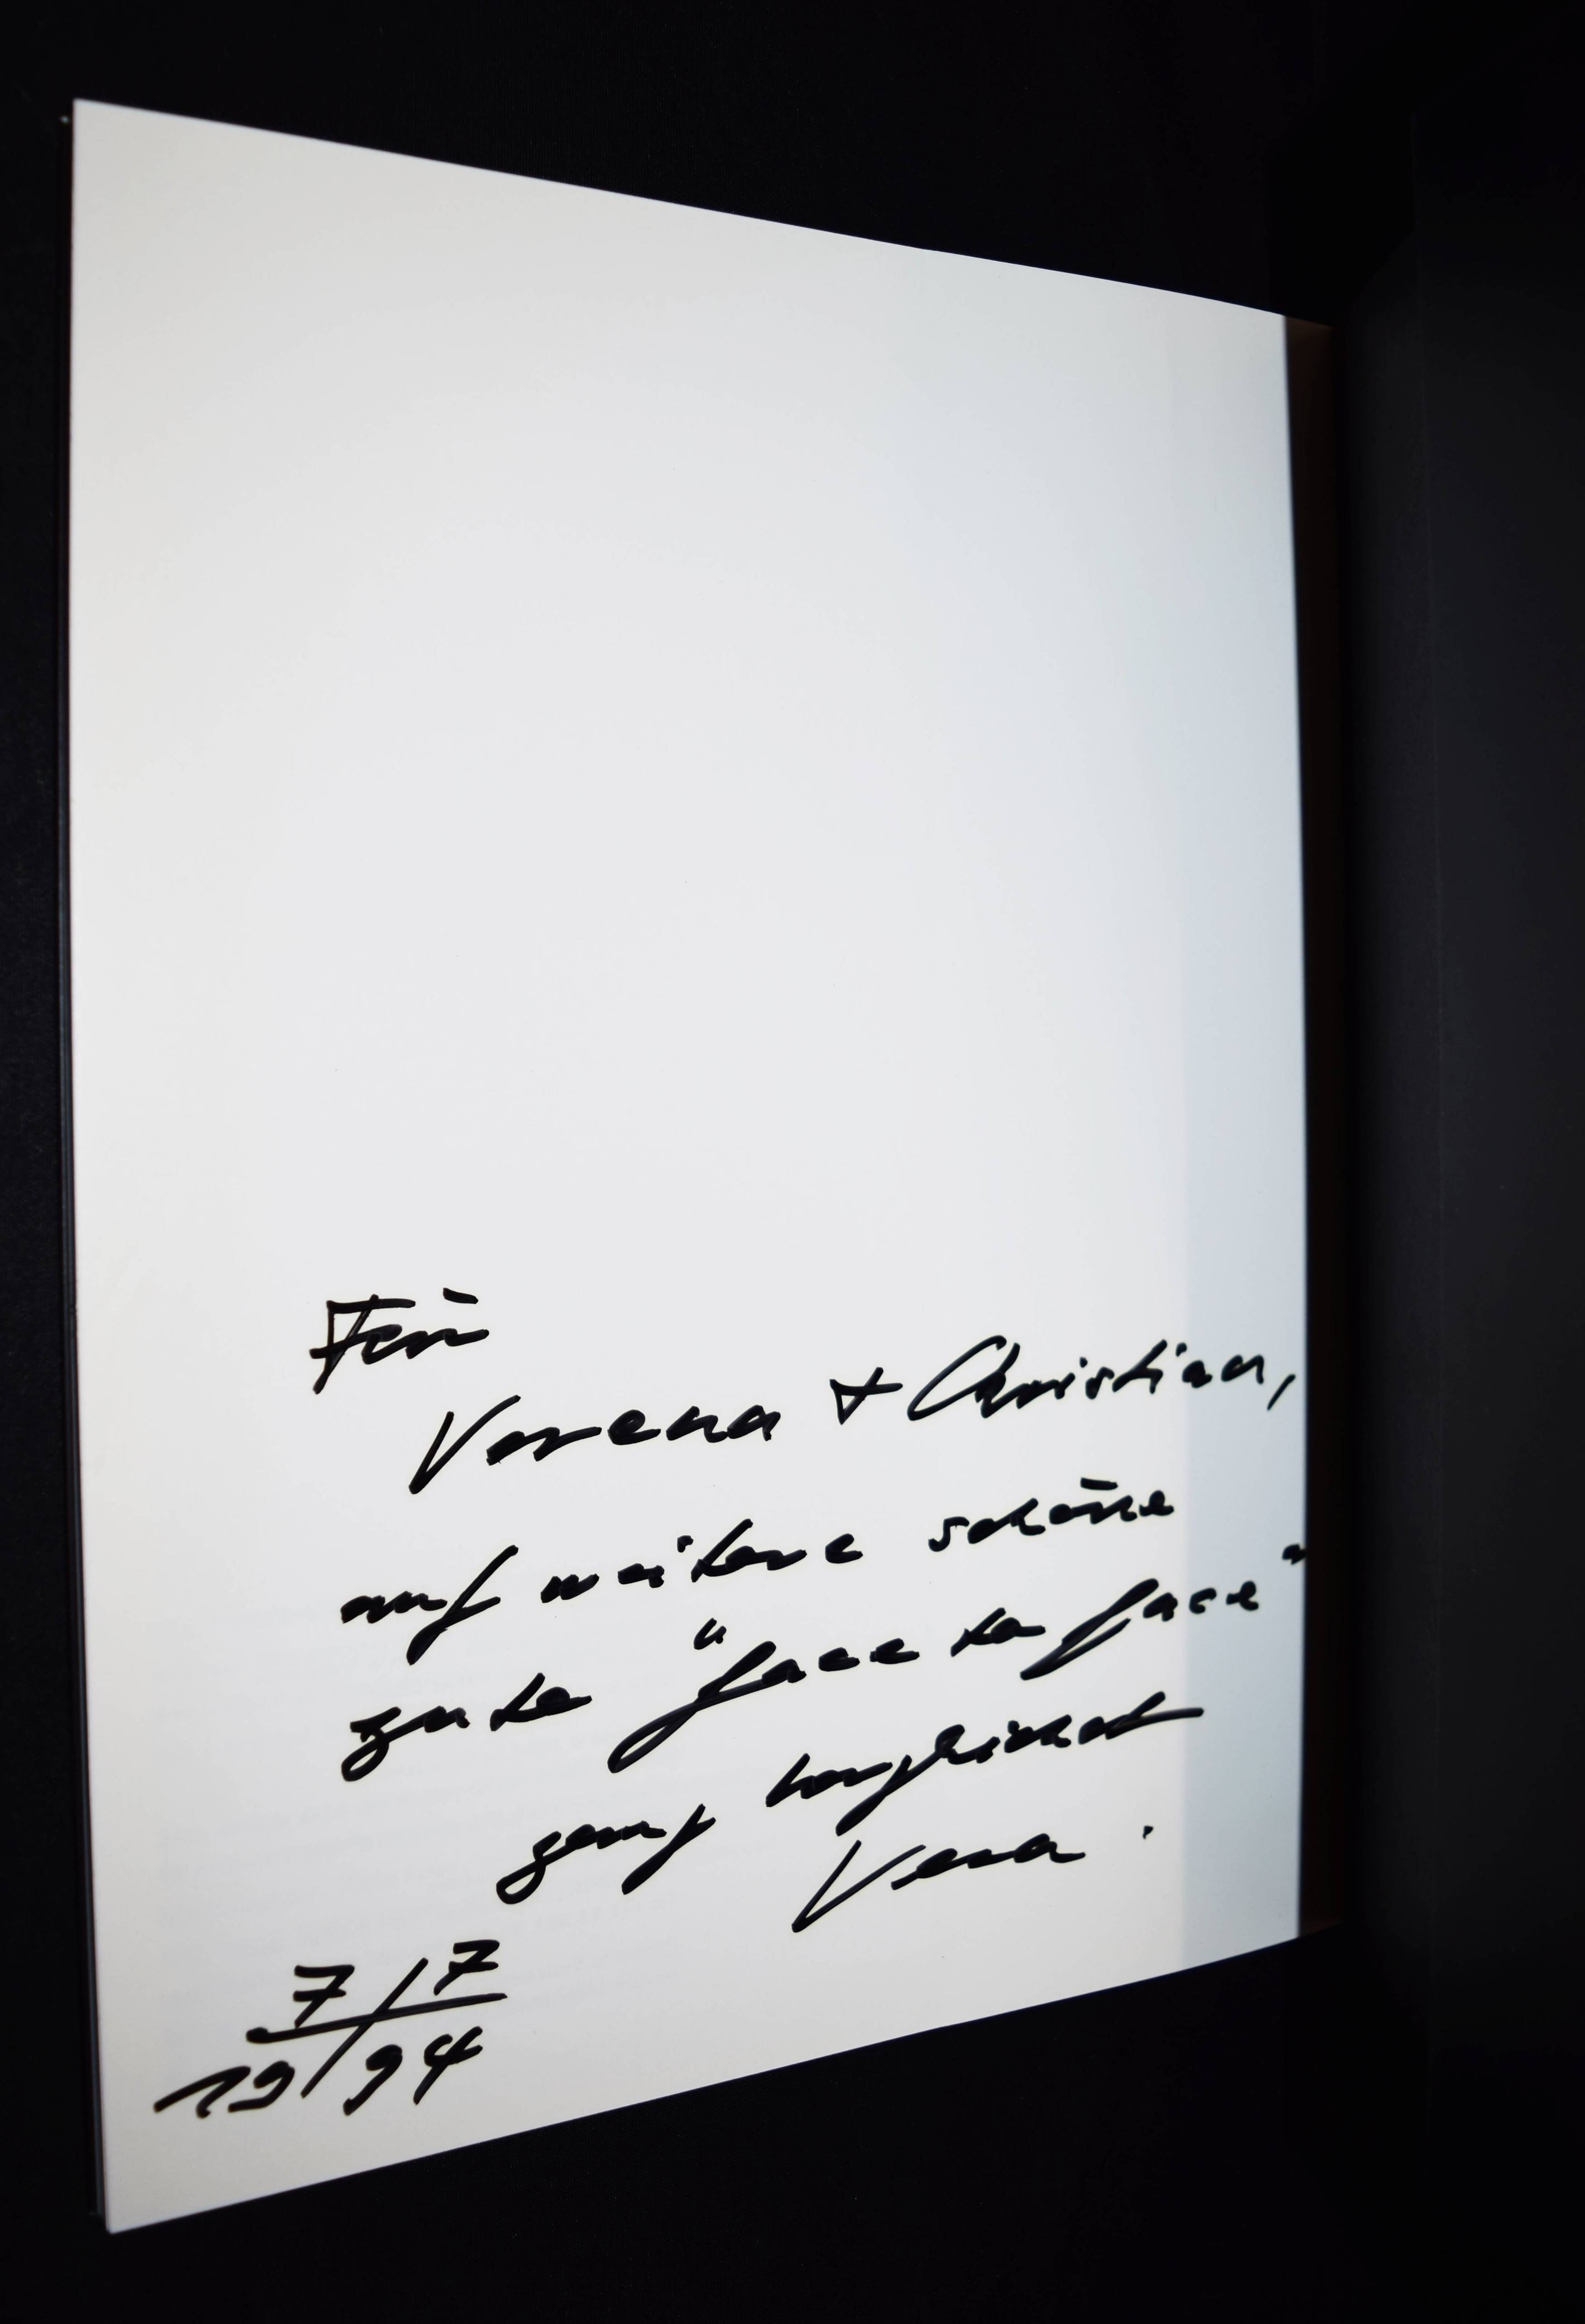 Für
Verena + Christian,
auf weitere schöne
gute "face to face"
ganz herzlichst
Vera.
7/7
19/94